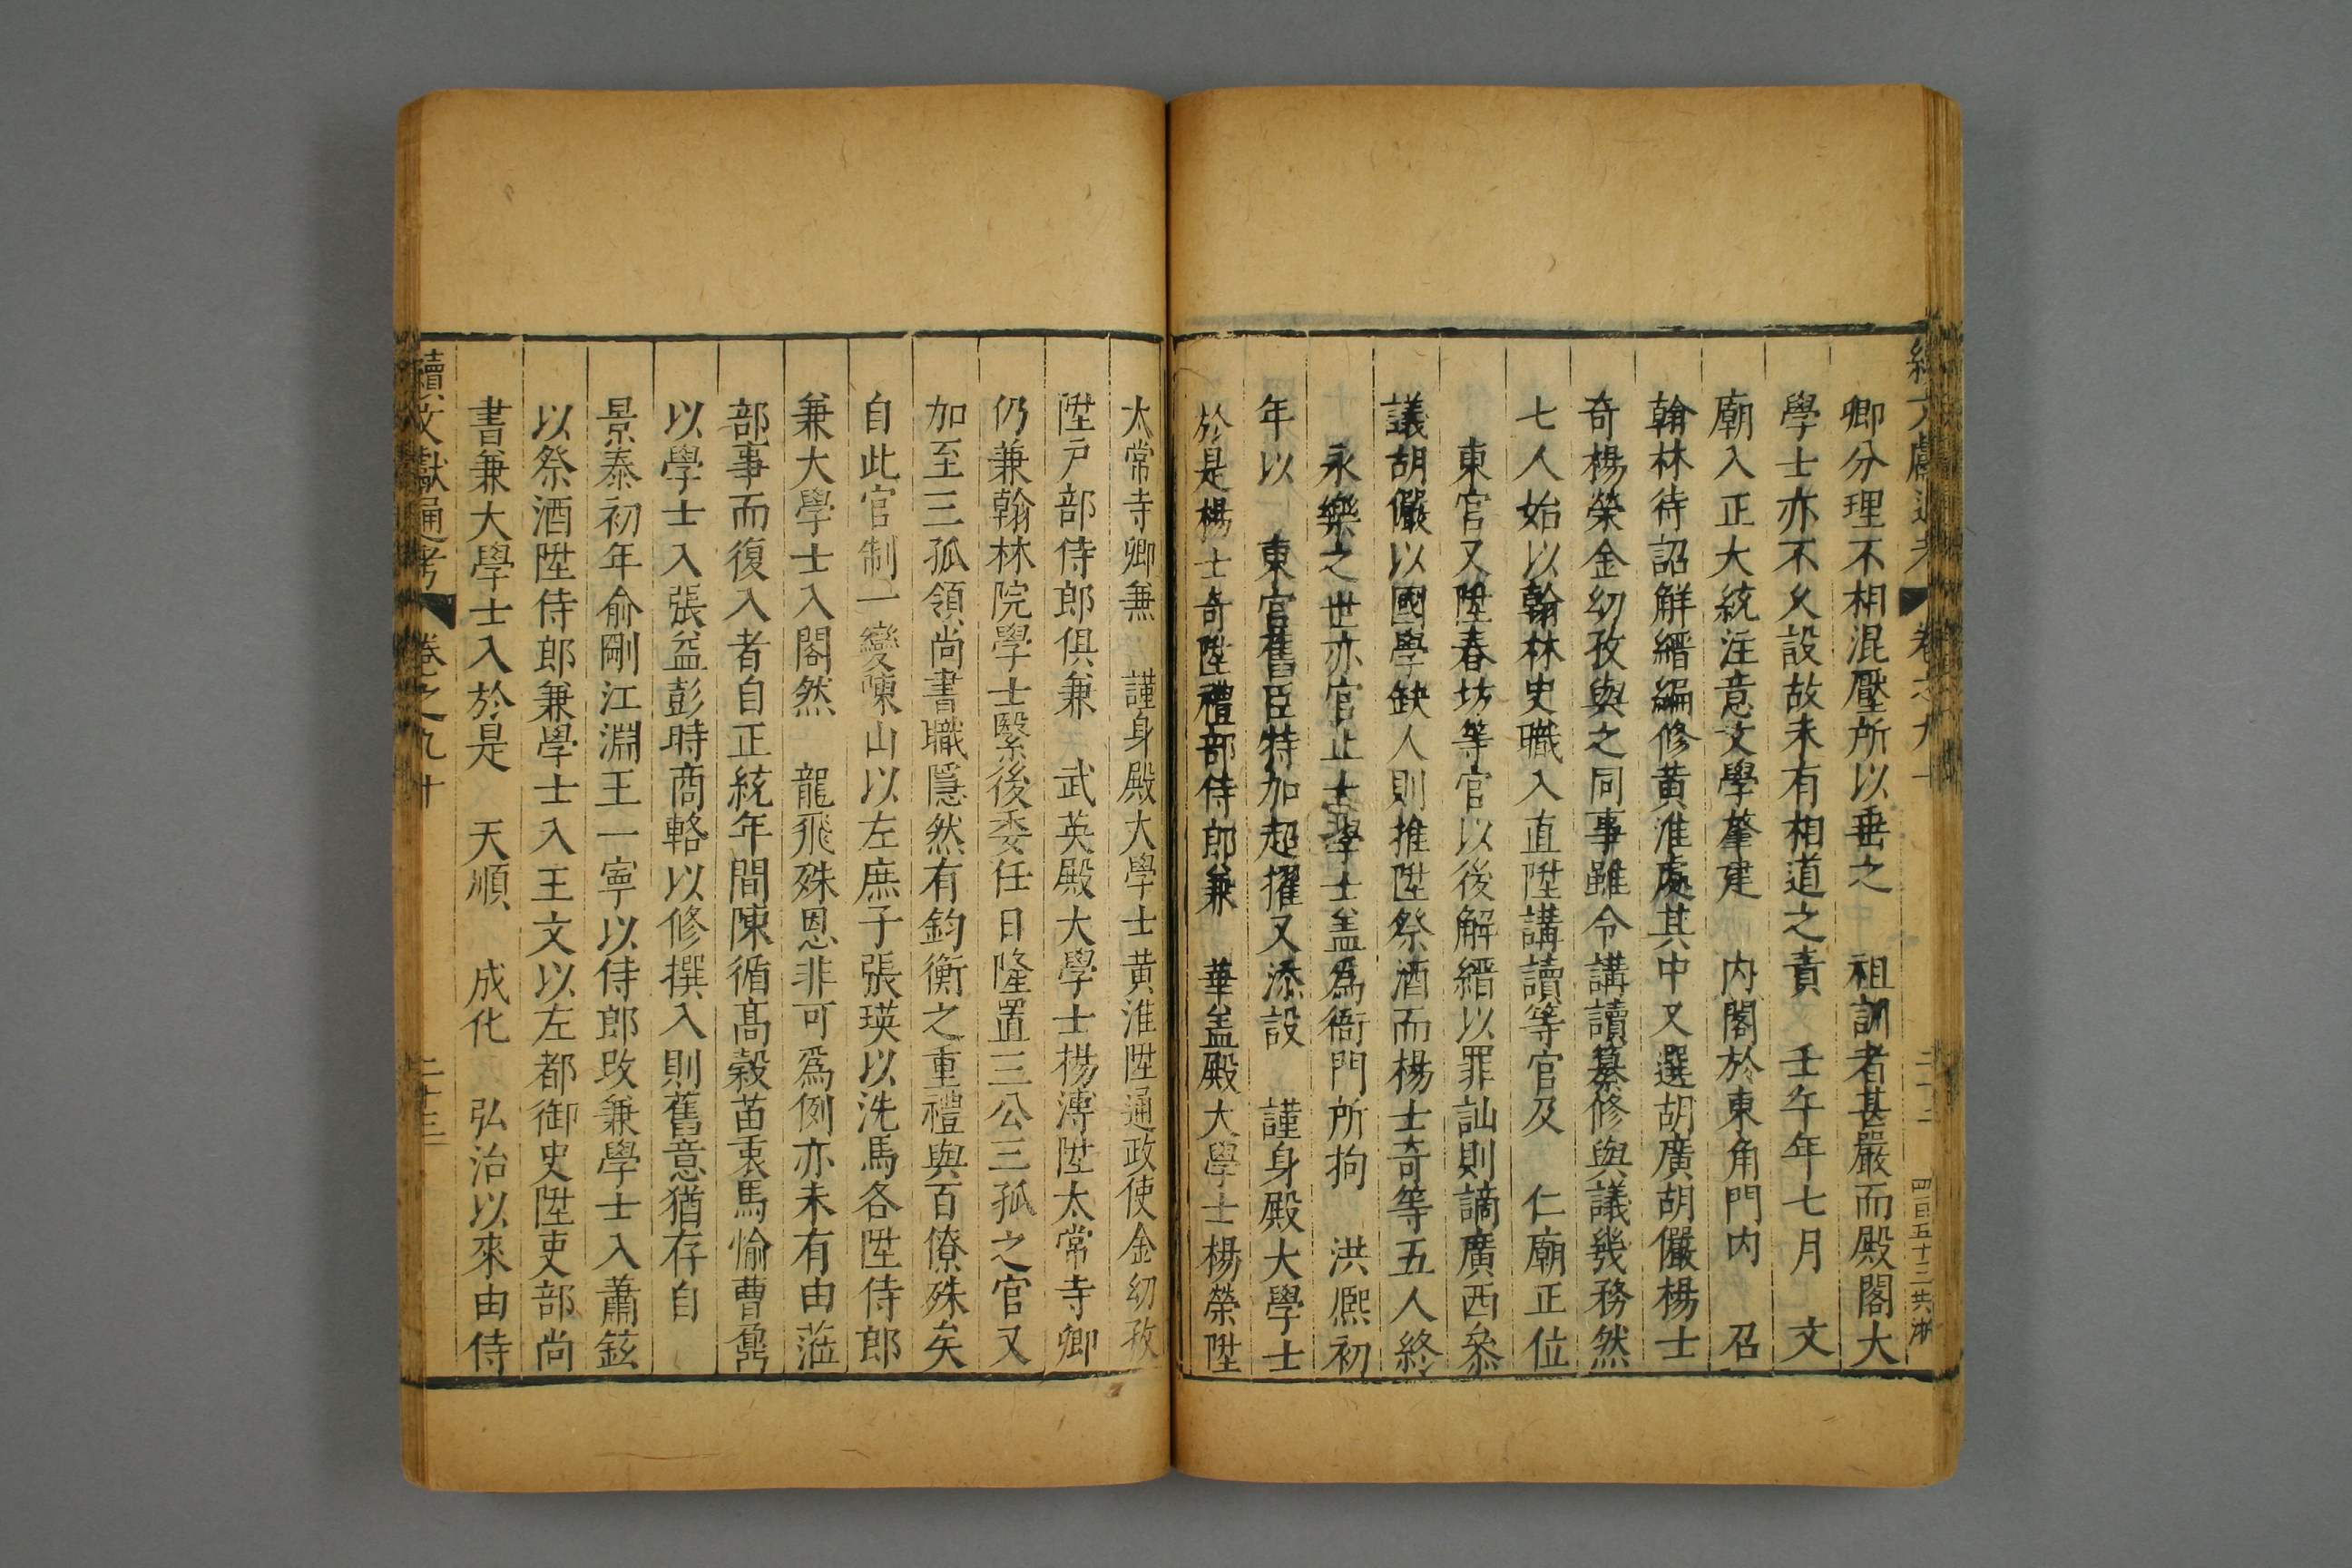 續文獻通考 卷之九十 二十二 四百五十三共
卿分理不相混壓所以垂之 祖訓者甚嚴而殿閣大
學士亦不乆設故未有相道之責 壬午年七月 文
廟入正大統注意文學肇建 內閣於東角門内 召
翰林待詔解縉編修黃淮處其中又選胡廣胡儼楊士
奇楊榮金幼孜與之同事雖令講讀纂修與議幾務然
七人始以翰林史職入直陞講讀等官及 仁廟正位
東宫又陞春坊等官以後解縉以罪訕則謫廣西叅
議胡儼以國學缺人則推陞祭酒而楊士奇等五人終
永樂之世亦官止大學士盖爲衙門所拘 洪熈初
年以 東宫舊臣特加超擢又添設 謹身殿大學士
於是楊士奇陞禮部侍郎兼 華盖殿大學士楊榮陞
太常寺卿兼 謹身殿大學士黃淮陞通政使金幼孜
陞戸部侍郎俱兼 武英殿大學士楊溥陞太常寺卿
仍兼翰林院學士繫後委任日隆置三公三孤之官又
加至三孤領尚書職隱然有鈞衡之重禮與百僚殊矣
自此官制一變陳山以左庶子張瑛以洗馬各陞侍郎
兼大學士入閣然 龍飛殊恩非可爲例亦未有由蒞
部事而復入者自正統年間陳循高榖苗衷馬愉曹鼐
以學士入張益彭時商輅以修撰入則舊意猶存自
景泰初年俞剛江淵王一寧以侍郎改兼學士入蕭鉉
以祭酒陞侍郎兼學士入王文以左都御史陞吏部尚
書兼大學士入於是 天順 成化 弘治以來由侍
續文獻通考 卷之九十 二十三